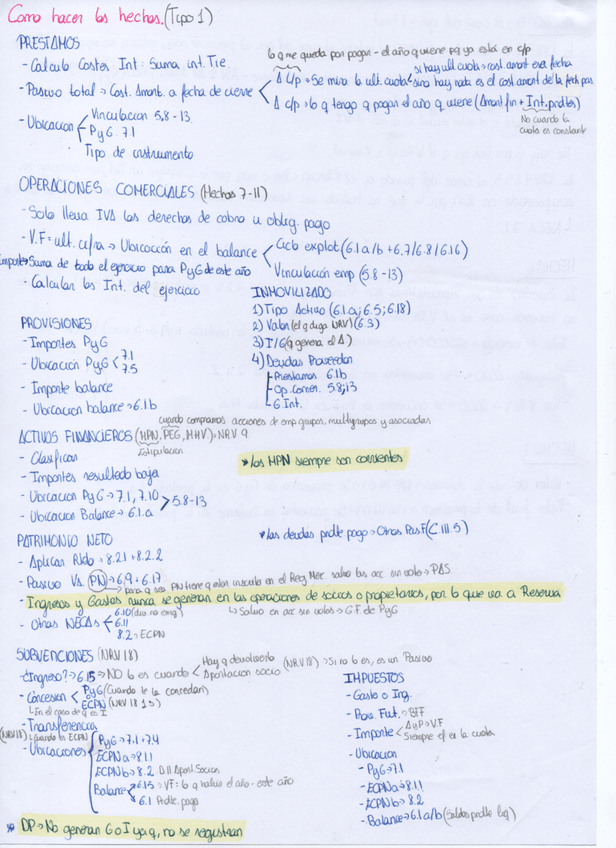 Como hacer los hechos. (Tipo 1)
PRESTAMOS
- Calculo Costes Int: Suma int. Tie.
lo q me queda por pagar - el año q viene pq ya está en c/p
- Pasivo total → Cost. Amort. a fecha de cierre
Δ L/p → Se mira la ult. cuota
si hay ult cuota → cost amort esa fecha
sino hay nada es el cost amort de la fecha
Δ c/p → lo q tengo q pagar el año q viene (Amort fin + Int. pndtes)
No cuando la cuota es constante
- Ubicacion
Vinculacion 5.8-13.
PyG 7.1
Tipo de instrumento
OPERACIONES COMERCIALES (Hechos 7-11)
- Solo lleva IVA los derechos de cobro u oblig. pago
- V.F = ult. cifra → Ubicacción en el balance
Ciclo explot (6.1 a/b + 6.7/6.8/6.16)
Vinculacion emp (5.8-13)
Importe → Suma de todo el ejercicio para PyG de este año
- Calcular los Int. del ejercicio
INMOVILIZADO
1) Tipo Activo (6.1.a; 6.5; 6.18)
2) Valor (el q diga NRV) (6.3)
3) I/G (q genera el Δ)
4) Deudas Proveedor
Prestamos 6.1b
Op. Comer. 5.8; 13
G. Int.
PROVISIONES
- Importes PyG
- Ubicación PyG < 7.1
7.5
- Importe balance
- Ubicacion balance → 6.1.b
cuando compramos acciones de emp grupos, multigrupos y asociadas
ACTIVOS FINANCIEROS (MPN, PEG, MHV) → NRV 9
Estipulacion
- Clasificar
* Los MPN siempre son corrientes
- Importes resultado baja
- Ubicacion PyG → 7.1, 7.10
> 5.8-13
- Ubicacion Balance → 6.1.a
PATRIMONIO NETO
* Las deudas pndte pago → Otros Pas F (C III. 5)
- Aplicar Rtdo → 8.2.1 + 8.2.2
- Pasivo Vs. PN → 6.9 + 6.17
para q sea PN tiene q estar inscrito en el Reg Mer. salvo las acc sin voto → PAS
- Ingresos y Gastos nunca se generan en las operaciones de socios o propietarios, por lo que va a Reserva
↳ Salvo en acc sin votos → G.F. de PyG
- Otras NECAs
6.10
6.11
8.2 → ECPN
SUBVENCIONES (NRV 18)
- Ingreso? → 6.15 → NO lo es cuando
Hay q devolverlo (NRV 18) → Si no lo es, es un Pasivo
Aportacion socio
- Concesion
PyG (Cuando te la concedan)
ECPN (NRV 18 1.3)
- Transferencia
(NRV 18) ↳ Cuando en ECPN
- Ubicaciones
PyG → 7.1 + 7.4
ECPNa → 8.1.1
ECPNb → 8.2 D.II Aport. Socios
Balance
6.15 → VF: lo q había el año - este año
6.1 Pndte. pago
IMPUESTOS
- Gasto o Ing.
- Pos. Fut. → BTF
- Importe
Δ y P → V.F
Siempre el es la cuota
- Ubicacion
- PyG → 7.1
- ECPNa → 8.1.1
- ECPNb → 8.2
- Balance → 6.1 a/b (Saldos pndte liq)
* DP → No generan G o I ya q, no se registran